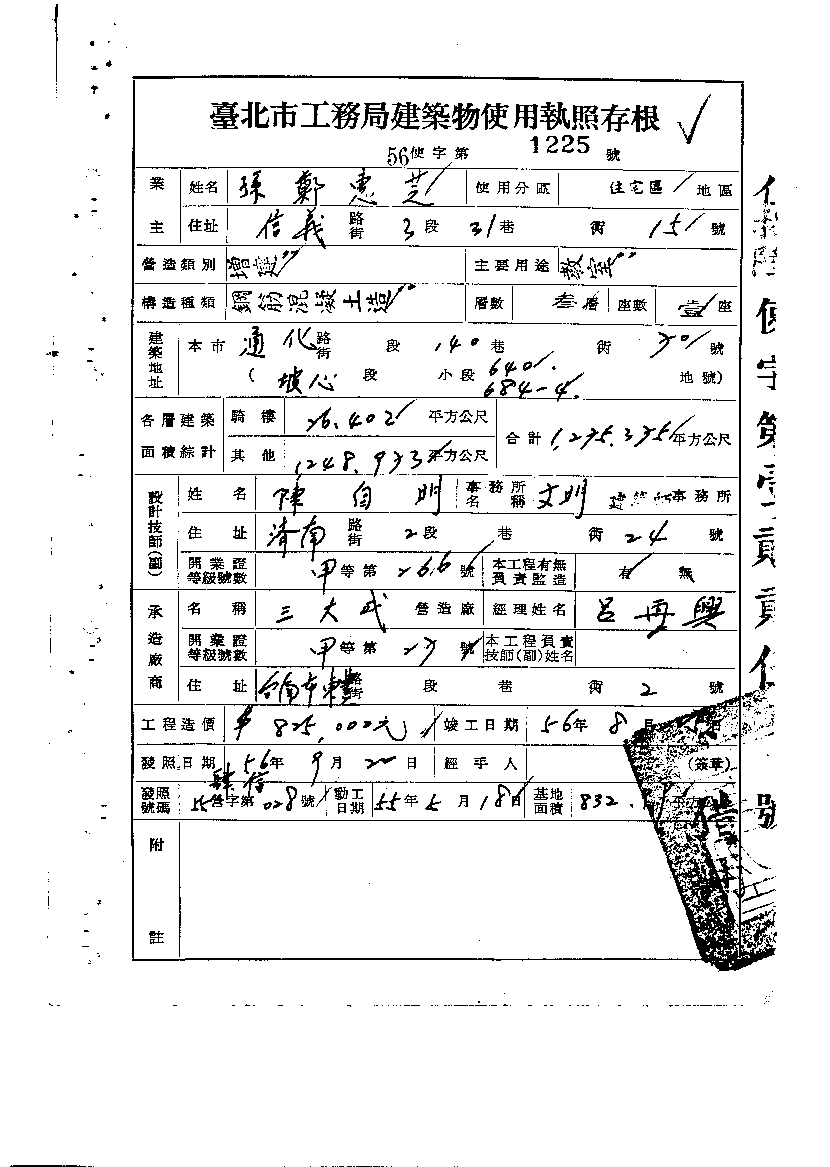 臺北市工務局建築物使用執照存根
56使字第 1225 號
業主 姓名 孫鄭惠芝 使用分區 住宅區 地區
住址 信義 路街 3段 31巷 街 15 號
營造類別 增建 主要用途 教室
構造種類 鋼筋混凝土造 層數 叁層 座數 壹座
建築地址 本市 通化 路街 段 140巷 街 30 號
( 坡心 段 小段 640. 684-4. 地號)
各層建築面積綜計 騎樓 26.402 平方公尺 合計 1,275.375 平方公尺
其他 1,248.973 平方公尺
設計技師(副) 姓名 陳自明 事務所名稱 文明 建築師事務所
住址 濟南 路街 2段 巷 街 24 號
開業證等級號數 甲等第 266 號 本工程有無負責監造 有 無
承造廠商 名稱 三大式 營造廠 經理姓名 呂再興
開業證等級號數 甲等第 27 號 本工程負責技師(副)姓名
住址 台南市東豐 路街 段 巷 街 2 號
工程造價 $825,000元 竣工日期 56年 8月
發照日期 56年 9月 20日 經手人 (簽章)
發照號碼 55營字第 028號 動工日期 55年 5月 18日 基地面積 832.
附註
使字第壹貳貳伍號